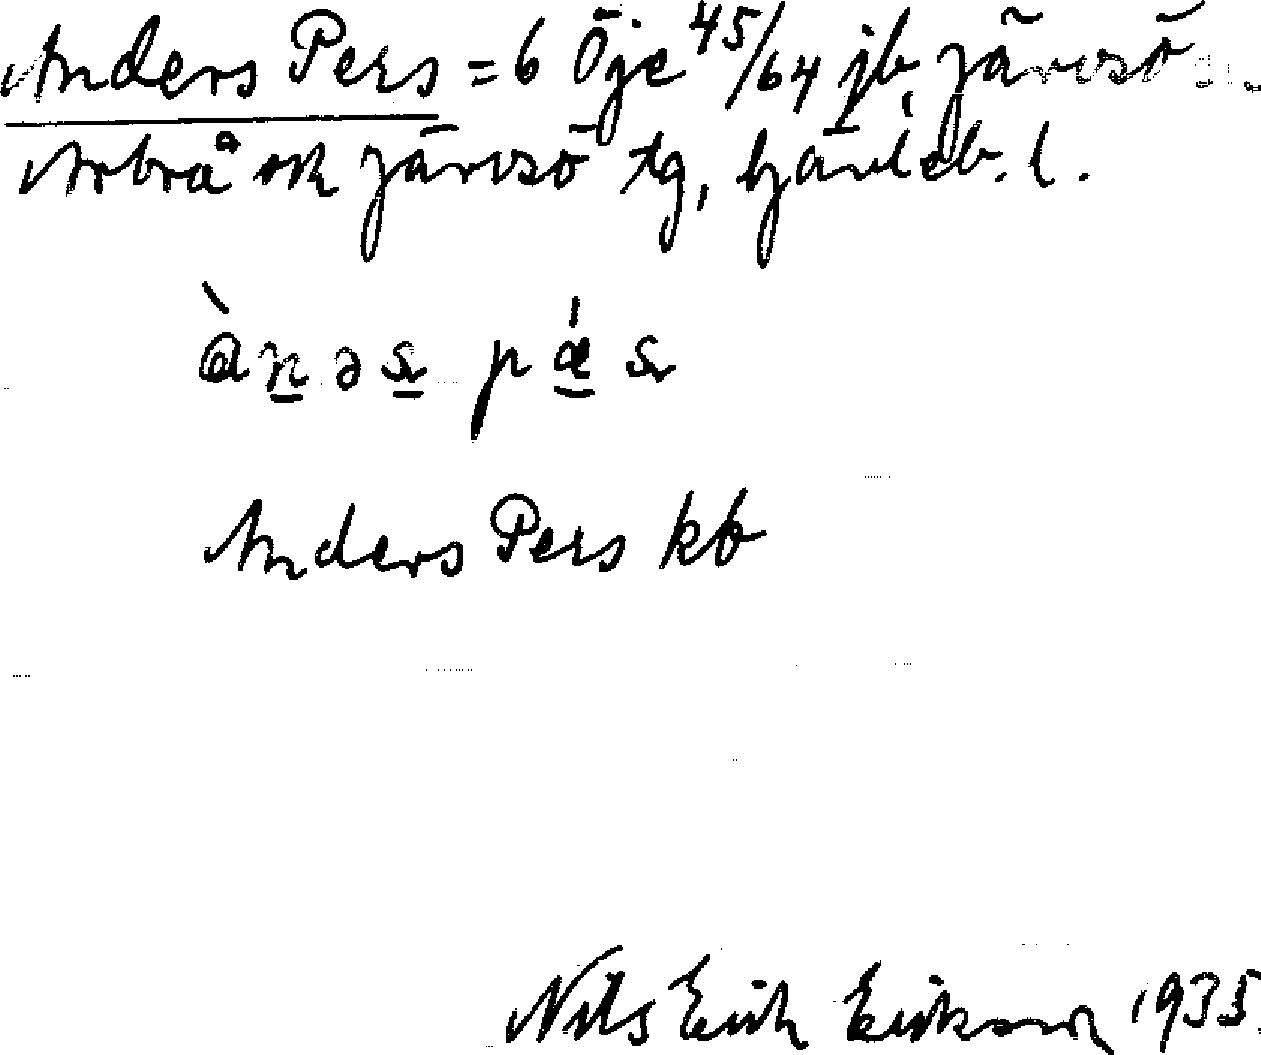 Anders Pers = 6 Öje 45/64 jb, Järvsö sn.
Arbrå och Järvsö tg, Gävleb. l.
ànəs pǽs
Anders Pers kb
Nils Erik Erikson 1935